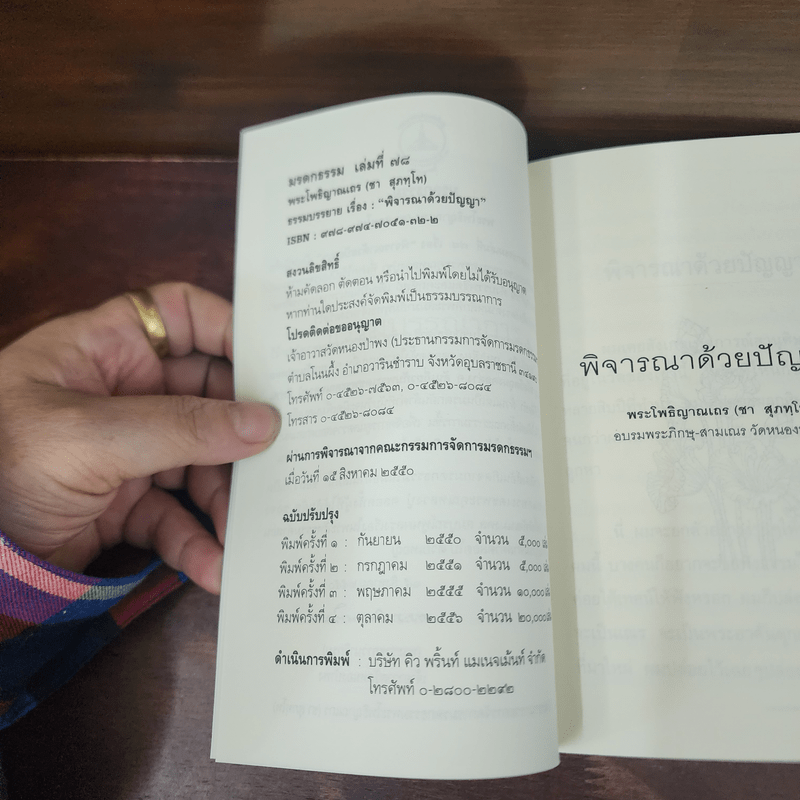 มรดกธรรม เล่มที่ ๗๘
พระโพธิญาณเถร (ชา สุภทฺโท)
ธรรมบรรยาย เรื่อง : "พิจารณาด้วยปัญญา"
ISBN : ๙๗๘-๙๗๔-๗๐๕๑-๓๒-๒
สงวนลิขสิทธิ์
ห้ามคัดลอก ตัดตอน หรือนำไปพิมพ์โดยไม่ได้รับอนุญาต
หากท่านใดประสงค์จัดพิมพ์เป็นธรรมบรรณาการ
โปรดติดต่อขออนุญาต
เจ้าอาวาสวัดหนองป่าพง (ประธานกรรมการจัดการมรดกธรรม
ตำบลโนนผึ้ง อำเภอวารินชำราบ จังหวัดอุบลราชธานี
โทรศัพท์ ๐-๔๕๒๖-๗๕๖๓, ๐-๔๕๒๖-๘๐๘๔
โทรสาร ๐-๔๕๒๖-๘๐๘๔
ผ่านการพิจารณาจากคณะกรรมการจัดการมรดกธรรมฯ
เมื่อวันที่ ๑๕ สิงหาคม ๒๕๕๐
ฉบับปรับปรุง
พิมพ์ครั้งที่ ๑ : กันยายน ๒๕๕๐ จำนวน ๕,๐๐๐
พิมพ์ครั้งที่ ๒ : กรกฎาคม ๒๕๕๑ จำนวน ๕,๐๐๐
พิมพ์ครั้งที่ ๓ : พฤษภาคม ๒๕๕๕ จำนวน ๑๐,๐๐๐
พิมพ์ครั้งที่ ๔ : ตุลาคม ๒๕๕๖ จำนวน ๒๐,๐๐๐
ดำเนินการพิมพ์ : บริษัท คิว พริ้นท์ แมเนจเม้นท์ จำกัด
โทรศัพท์ ๐-๒๘๐๐-๒๒๙๒
พิจารณาด้วยปัญ
พระโพธิญาณเถร (ชา สุภทฺโท
อบรมพระภิกษุ-สามเณร วัดหนอง